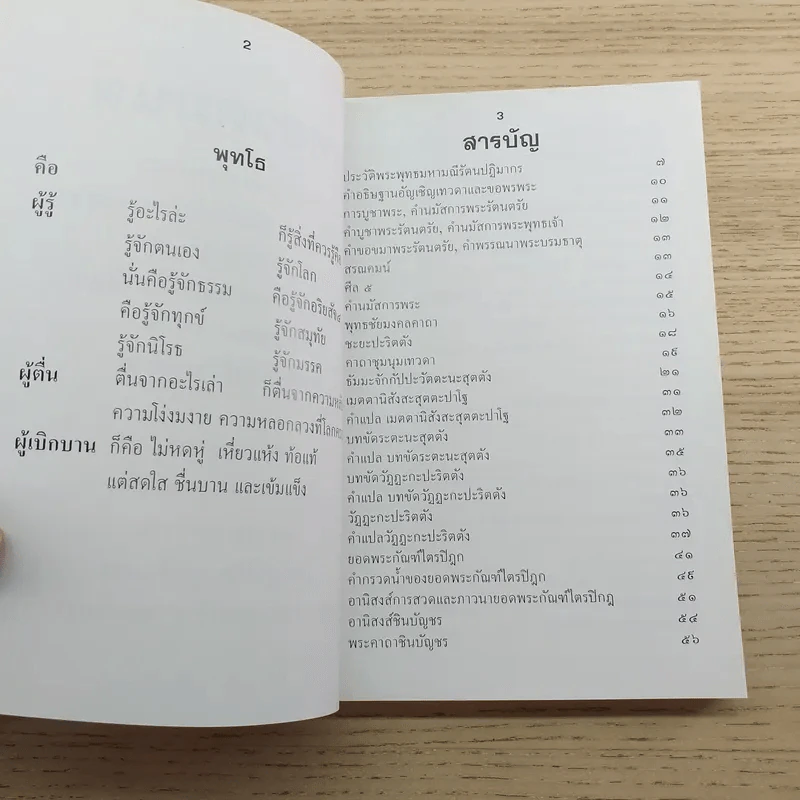 2
พุทโธ
คือ
ผู้รู้ รู้อะไรล่ะ ก็รู้สิ่งที่ควรรู้
รู้จักตนเอง รู้จักโลก
นั่นคือรู้จักธรรม คือรู้จักอริยสัจ
คือรู้จักทุกข์ รู้จักสมุทัย
รู้จักนิโรธ รู้จักมรรค
ผู้ตื่น ตื่นจากอะไรเล่า ก็ตื่นจาก
ความโง่งมงาย ความหลอกลวงที่
ผู้เบิกบาน ก็คือ ไม่หดหู่ เหี่ยวแห้ง ท้อแท้
แต่สดใส ชื่นบาน และเข้มแข็ง
3
สารบัญ
ประวัติพระพุทธมหามณีรัตนปฏิมากร ๗
คำอธิษฐานอัญเชิญเทวดาและขอพรพระ ๑๐
การบูชาพระ, คำนมัสการพระรัตนตรัย ๑๑
คำบูชาพระรัตนตรัย, คำนมัสการพระพุทธเจ้า ๑๒
คำขอขมาพระรัตนตรัย, คำพรรณนาพระบรมธาตุ ๑๓
สรณคมน์ ๑๓
ศีล ๕ ๑๔
คำนมัสการพระ ๑๕
พุทธชัยมงคลคาถา ๑๖
ชะยะปะริตตัง ๑๘
คาถาชุมนุมเทวดา ๑๙
ธัมมะจักกัปปะวัตตะนะสุตตัง ๒๑
เมตตานิสังสะสุตตะปาโฐ ๓๑
คำแปล เมตตานิสังสะสุตตะปาโฐ ๓๒
บทขัดระตะนะสุตตัง ๓๓
คำแปล บทขัดระตะนะสุตตัง ๓๕
บทขัดวัฏฏะกะปะริตตัง ๓๖
คำแปล บทขัดวัฏฏะกะปะริตตัง ๓๖
วัฏฏะกะปะริตตัง ๓๖
คำแปลวัฏฏะกะปะริตตัง ๓๗
ยอดพระกัณฑ์ไตรปิฎก ๔๑
คำกรวดน้ำของยอดพระกัณฑ์ไตรปิฎก ๔๙
อานิสงส์การสวดและภาวนายอดพระกัณฑ์ไตรปิกฎ ๕๑
อานิสงส์ชินบัญชร ๕๔
พระคาถาชินบัญชร ๕๖